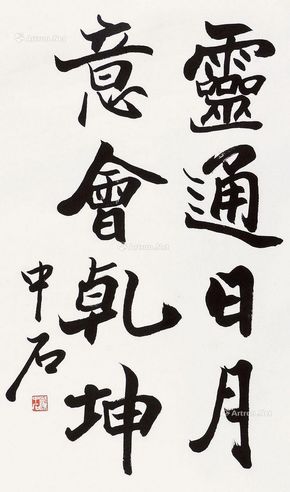 靈通日月
意會乾坤
中石
Artron.Net
Artron.Net
Artron.Net